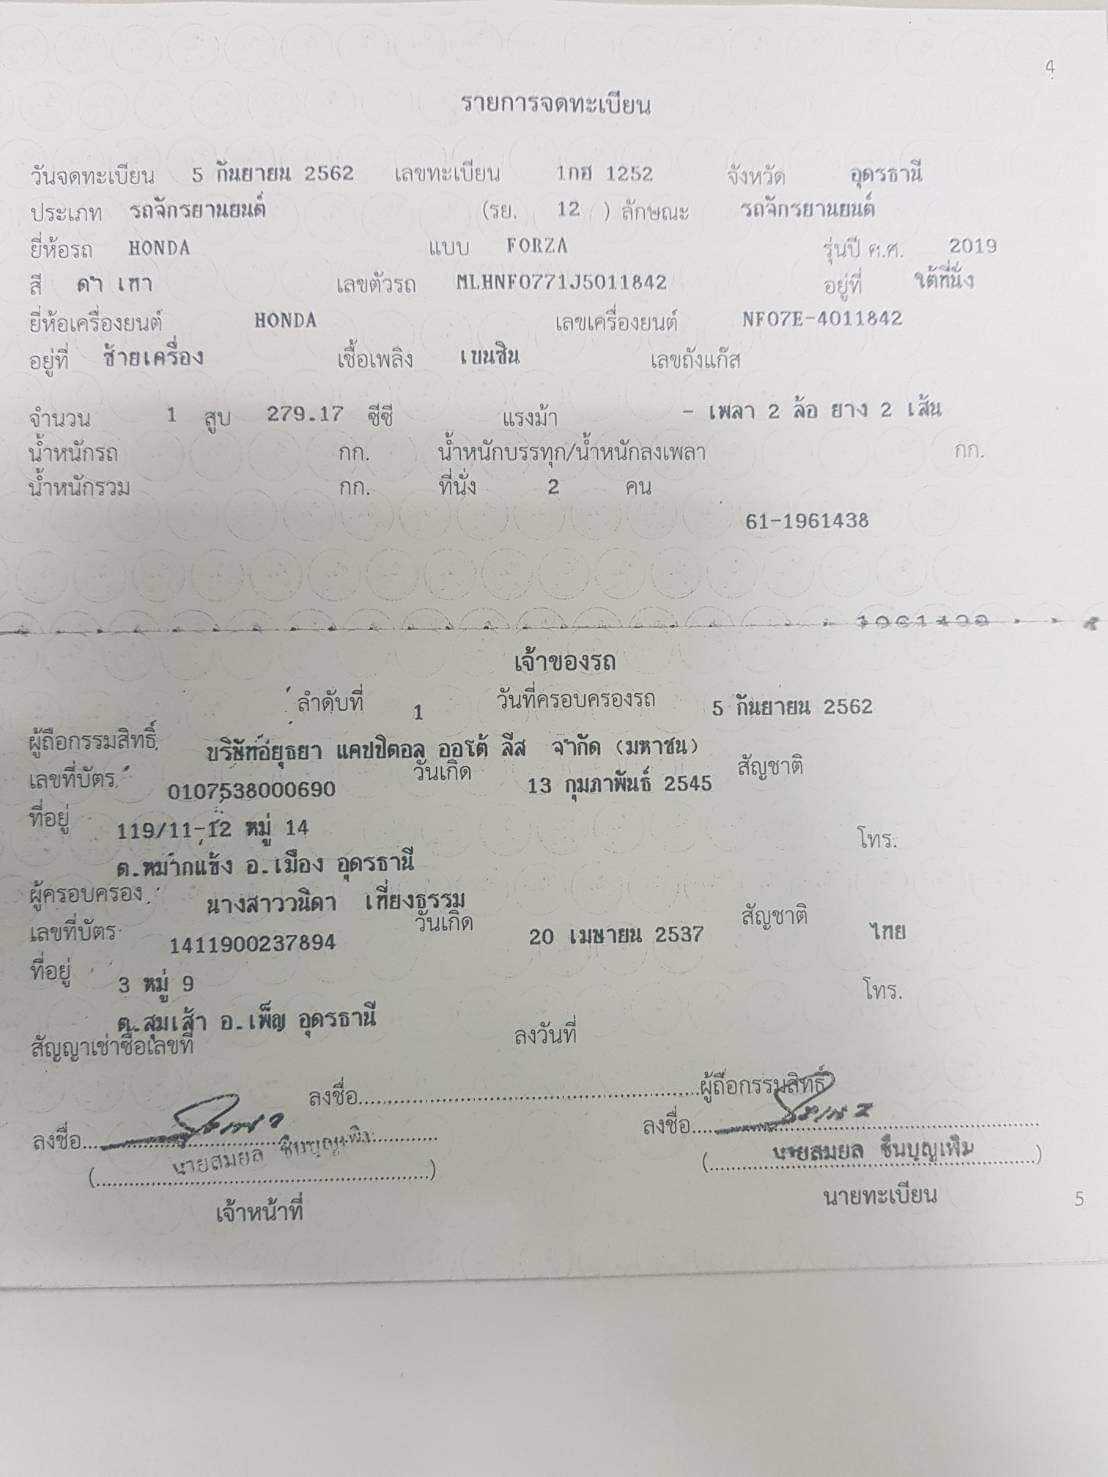 4
รายการจดทะเบียน
วันจดทะเบียน 5 กันยายน 2562 เลขทะเบียน 1กฮ 1252 จังหวัด อุดรธานี
ประเภท รถจักรยานยนต์ (รย. 12 ) ลักษณะ รถจักรยานยนต์
ยี่ห้อรถ HONDA แบบ FORZA รุ่นปี ค.ศ. 2019
สี ดำ เทา เลขตัวรถ MLHNF0771J5011842 อยู่ที่ ใต้ที่นั่ง
ยี่ห้อเครื่องยนต์ HONDA เลขเครื่องยนต์ NF07E-4011842
อยู่ที่ ซ้ายเครื่อง เชื้อเพลิง เบนซิน เลขถังแก๊ส
จำนวน 1 สูบ 279.17 ซีซี แรงม้า - เพลา 2 ล้อ ยาง 2 เส้น
น้ำหนักรถ กก. น้ำหนักบรรทุก/น้ำหนักลงเพลา กก.
น้ำหนักรวม กก. ที่นั่ง 2 คน
61-1961438
เจ้าของรถ
ลำดับที่ 1 วันที่ครอบครองรถ 5 กันยายน 2562
ผู้ถือกรรมสิทธิ์ บริษัทอยุธยา แคปปิตอล ออโต้ ลีส จำกัด (มหาชน)
เลขที่บัตร 0107538000690 วันเกิด 13 กุมภาพันธ์ 2545 สัญชาติ
ที่อยู่ 119/11-12 หมู่ 14 โทร.
ต.หมากแข้ง อ.เมือง อุดรธานี
ผู้ครอบครอง นางสาววนิดา เที่ยงธรรม
เลขที่บัตร 1411900237894 วันเกิด 20 เมษายน 2537 สัญชาติ ไทย
ที่อยู่ 3 หมู่ 9 โทร.
ต.สุมเส้า อ.เพ็ญ อุดรธานี
สัญญาเช่าซื้อเลขที่ ลงวันที่
ลงชื่อ..........ผู้ถือกรรมสิทธิ์
ลงชื่อ.......... ลงชื่อ..........
(นายสมยล ชื่นบุญเพิ่ม) (นายสมยล ชื่นบุญเพิ่ม)
เจ้าหน้าที่ นายทะเบียน
5